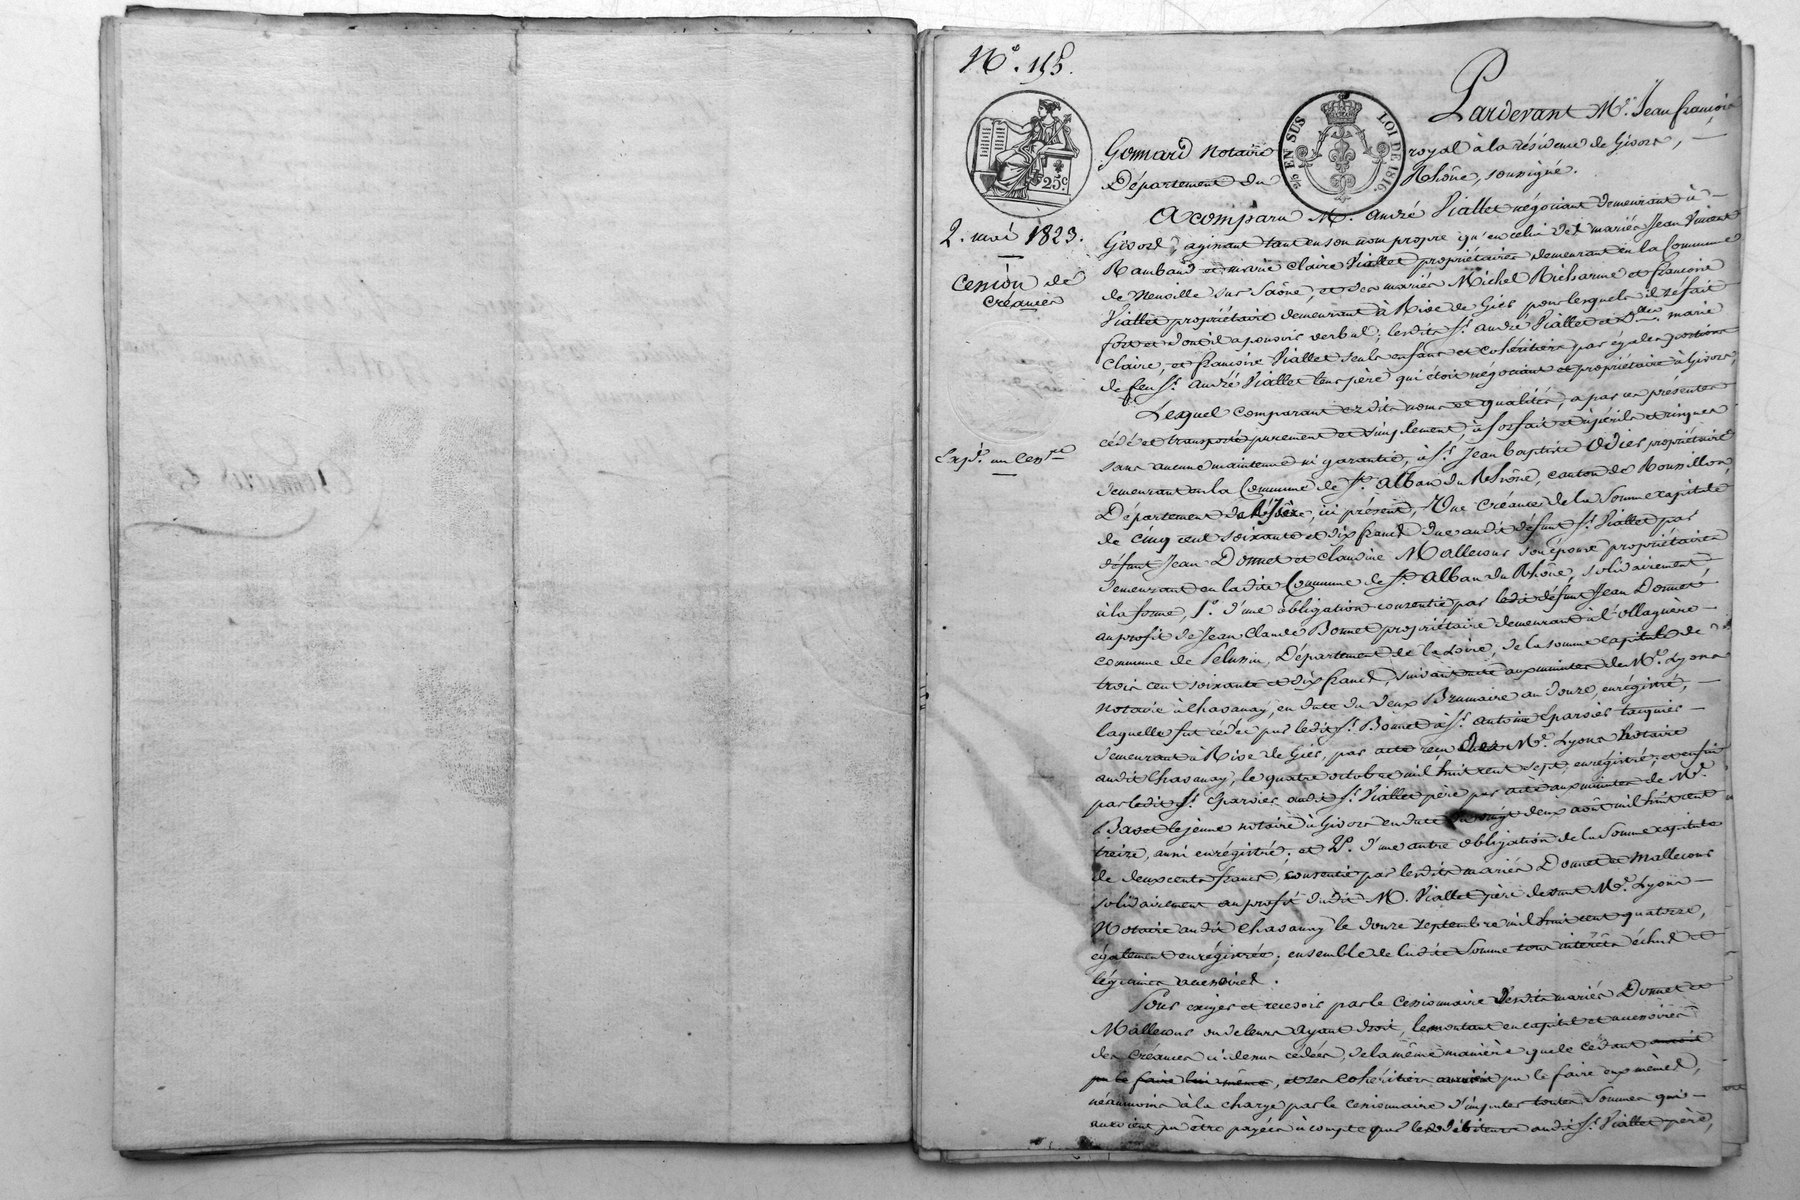 N.° 155.
25c
EN SUS
LOI DE 1816.
2. mai 1823.
Cession de
créances
Expd. un cent re
Pardevant Me. Jean françois
Gonnard Notaire royal à la résidence de Givors,
Département du Rhône, soussigné.
A comparu M. André Viallet négociant demeurant à
Givors, agissant tant en son nom propre qu'en celui des mariés Jean Vincent
Rambaud et marie Claire Viallet propriétaires demeurant en la Commune
de Neuville sur Saône, et des mariés Michel Richarme et françoise
Viallet propriétaire demeurant à Rive de Gier pour lesquels il se fait
fort et dont il a pouvoir verbal; lesdits Sr. André Viallet et Dlles. marie
Claire, et françoise Viallet seuls enfans et cohéritiers par égales portions
de feu Sr. André Viallet leur père qui étoit négociant et propriétaire à Givors,
Lequel comparant esdits noms et qualités, a par ces présentes
cédé et transporté purement et simplement, à forfait et à périls et risques
sans aucune maintenue ni garantie, à Sr. Jean baptiste Odier propriétaire
demeurant en la Commune de St. Alban du Rhône, canton de Roussillon,
Département de l'Isère, ici présent, Une Créance de la Somme capitale
de cinq cent soixante et dix francs due audit défunt Sr. Viallet par
défunt Jean Donnet et Claudine Mallecour son épouse propriétaires
demeurant en ladite Commune de St. Alban du Rhône, solidairement
à la forme, 1°. d'une obligation consentie par ledit défunt Jean Donnet,
au profit de Jean Claude Bonnet propriétaire demeurant à l'ollagnière
commune de Pelussin, Département de la Loire, de la somme capitale de
trois cent soixante et dix francs, suivant acte aux minutes de Me. Lyons
notaire à Chavanay, en date du deux Brumaire an douze, enregistré,
laquelle fut cédée par ledit Sr. Bonnet à Sr. Antoine Eparvier
demeurant à Rive de Gier, par acte reçu chez Me. Lyons Notaire
audit Chavanay, le quatre octobre mil huit cent sept, enregistré; et enfin
par ledit Sr. Eparvier audit Sr. Viallet père par acte aux minutes de Me.
le jeune notaire à Givors en date du vingt deux août mil huit cent
treize, aussi enregistré; et 2°. d'une autre obligation de la Somme capitale
de deux cents francs, consentie par lesdits mariés Donnet et Mallecour
solidairement au profit dudit M. Viallet père devant Me. Lyons
Notaire audit Chavanay le douze septembre mil huit cent quatorze,
également enregistrée; ensemble de ladite Somme tous intérêts échus et
légitimes accessoires.
Pour exiger et recevoir par le Cessionnaire desdits mariés Donnet et
Mallecour ou de leurs ayant droit, le montant en capital et accessoires
des Créances ci dessus cédées, de la même manière que le Cédant auroit
pu le faire lui même, et ses cohéritiers auroient pu le faire eux mêmes,
néanmoins à la charge par le cessionnaire d'imputer toutes Sommes qui
auroient pu être payées à compte par les débiteurs audit Sr. Viallet père,